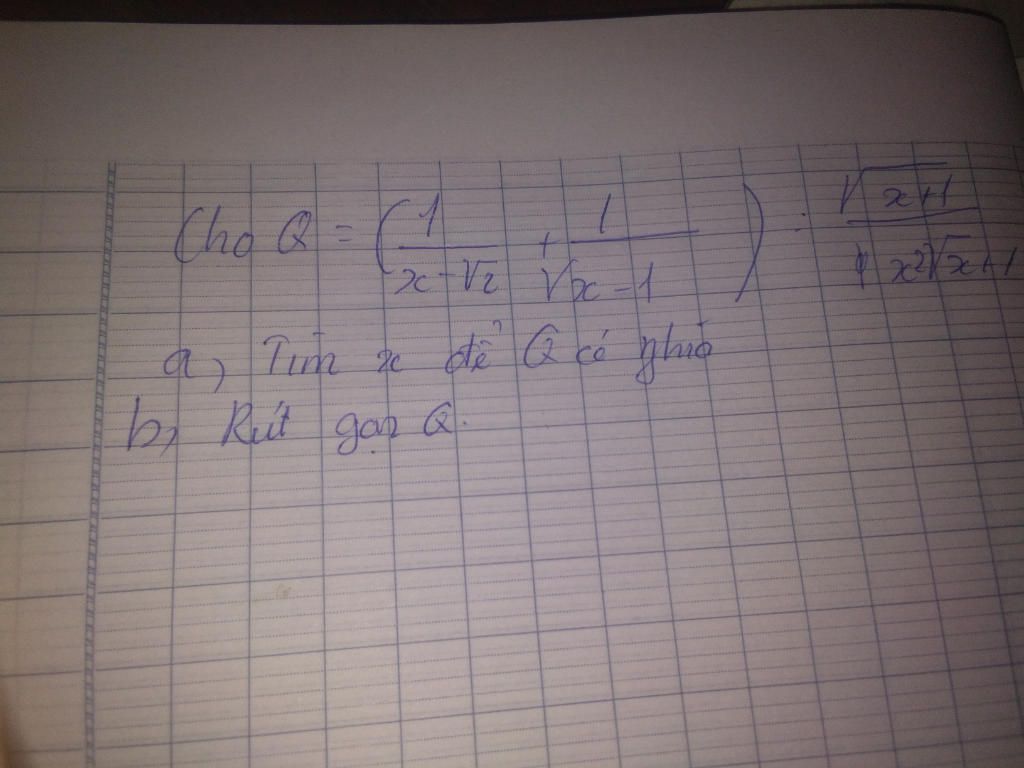 Cho Q = (1/(x-√2) + 1/(√x-1)) : √(x+1)/(x2√x+1)
a, Tìm x để Q có ghĩa
b, Rút gọn Q.